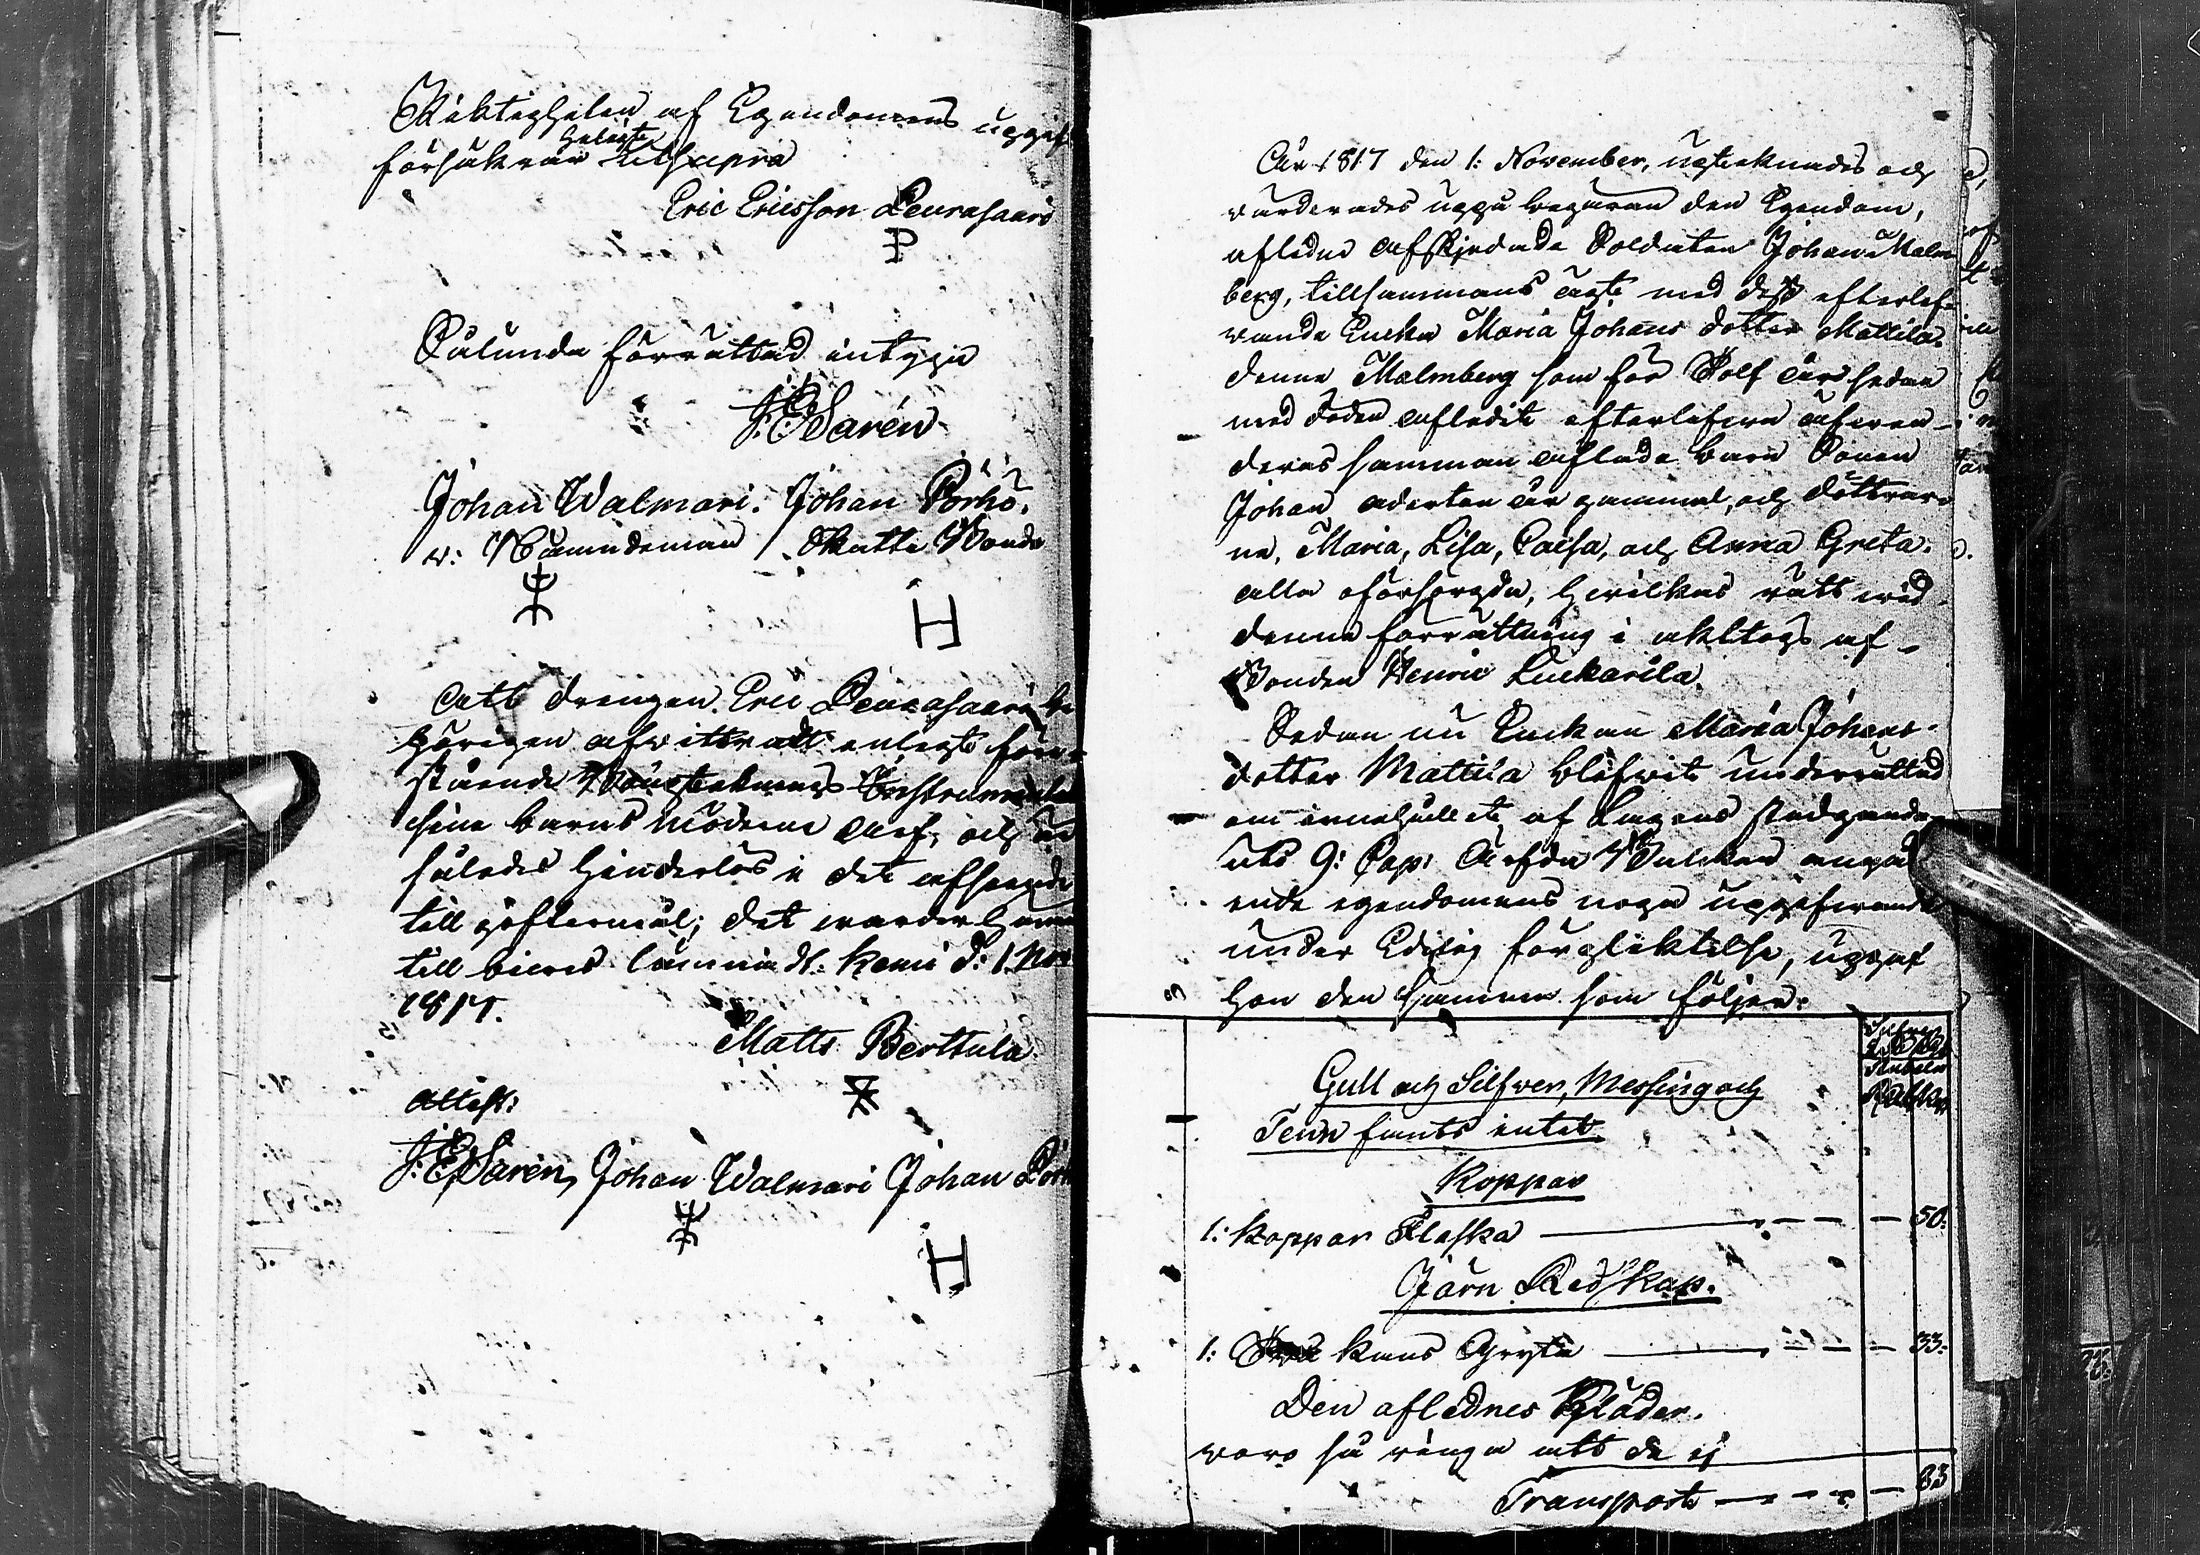 Riktigheten af Egendomens uppgif
försäkrar Utsupra
Eric Ericsson Peurasaari
Sålunda förrättad intyga
J. E. Sarén
Johan Walmari. Johan Pörhö.
v: Nämndeman Skatte Bonde
H
Att Drengen Eric Peurasaari be
hörigen afwittrat enligt före
stående Boupteknings Instrument
sine barns Möderne Arf, och är
således hinderlös i det afseende
till giftermål; det warder honom
till bewis lämnadt. Kemi d: 1 Nov
1817.
Matts Berttula
Attest:
J. E. Sarén, Johan Walmari Johan Pörh
H
År 1817 den 1: November, upteknades och
värderades uppå begäran den Egendom,
aflidne Afskjedade Soldaten Johan Malm
berg, tillsammans ägt med dess efterlef-
wande Encka Maria Johans dotter Mattila.
denne Malmberg som för Tolf år sedan
med döden aflidit efterlefwa äfwen
deras samman aflade barn Sonen
Johan aderton år gammal, och döttrar-
na, Maria, Lisa, Caisa, och Anna Greta.
alla oförsörgda, hwilkas rätt wid
denna förrättning i akttogs af
Bonden Henric Luckarila.
Sedan nu Enckan Maria Johans-
dotter Mattila blifwit underrättad
om innehållet af Lagens stadgande
uti 9: Cap: Ärfda Balken angå-
ende egendomens noga uppgifwande
under Edelig förpliktelse, uppgaf
hon den samma som följer:
Rubel
Gull och Silfwer, Messing och
Tenn fants intet.
Koppar
1: Koppar Flaska — 50:
Järn Redskap.
1: kans Gryta — 33:
Den aflednes Kläder.
woro så ringa att de ej
Transport — 83